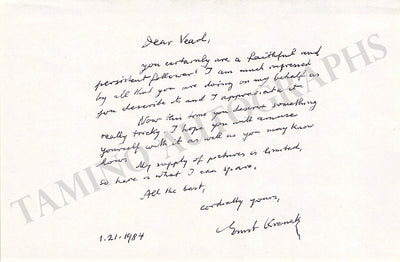 Dear Vearl,
you certainly are a faithful and
persistent follower! I am much impressed
by all that you are doing on my behalf as
you describe it and I appreciate it
Now this time you deserve something
really tricky. I hope you will amuse
yourself with it as well as you may know
how.
My supply of pictures is limited,
so here is what I can spare.
All the best,
cordially yours,
Ernst Krenek
1.21.1984
TAMINO AUTOGRAPHS